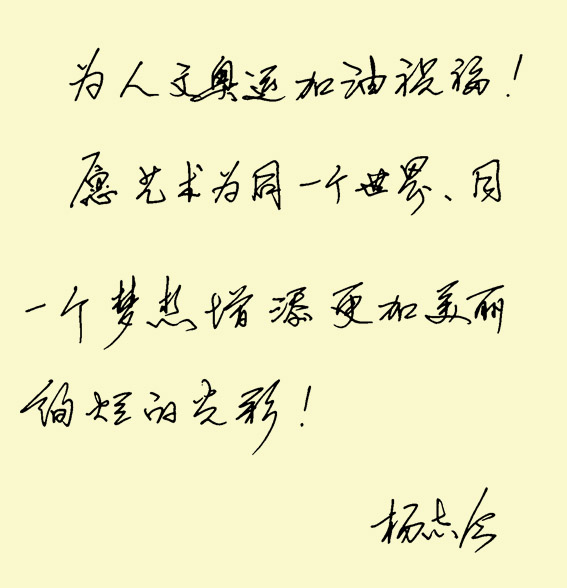 为人文奥运加油祝福！
愿艺术为同一个世界、同
一个梦想增添更加美丽
绚烂的光彩！
杨志今